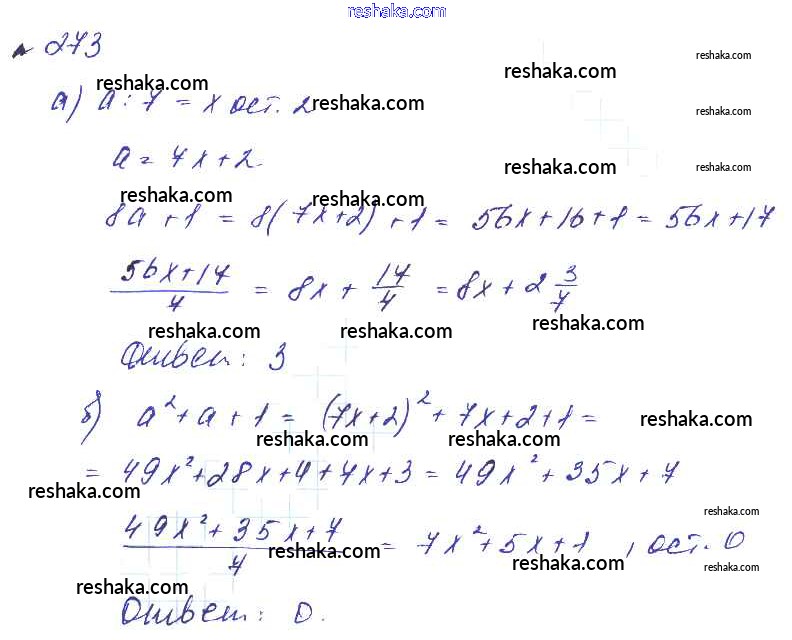 reshaka.com
№ 273
reshaka.com reshaka.com reshaka.com
а) a : 7 = x ост. 2 reshaka.com reshaka.com
a = 7x + 2 reshaka.com reshaka.com
reshaka.com reshaka.com
8a + 1 = 8(7x+2) + 1 = 56x + 16 + 1 = 56x + 17
(56x+17)/7 = 8x + 17/7 = 8x + 2 3/7
reshaka.com reshaka.com reshaka.com
Ответ: 3
б) a² + a + 1 = (7x+2)² + 7x + 2 + 1 = reshaka.com
reshaka.com reshaka.com
= 49x² + 28x + 4 + 7x + 3 = 49x² + 35x + 7
reshaka.com
reshaka.com
(49x² + 35x + 7)/7 = 7x² + 5x + 1, ост. 0
reshaka.com reshaka.com reshaka.com
reshaka.com
Ответ: 0.